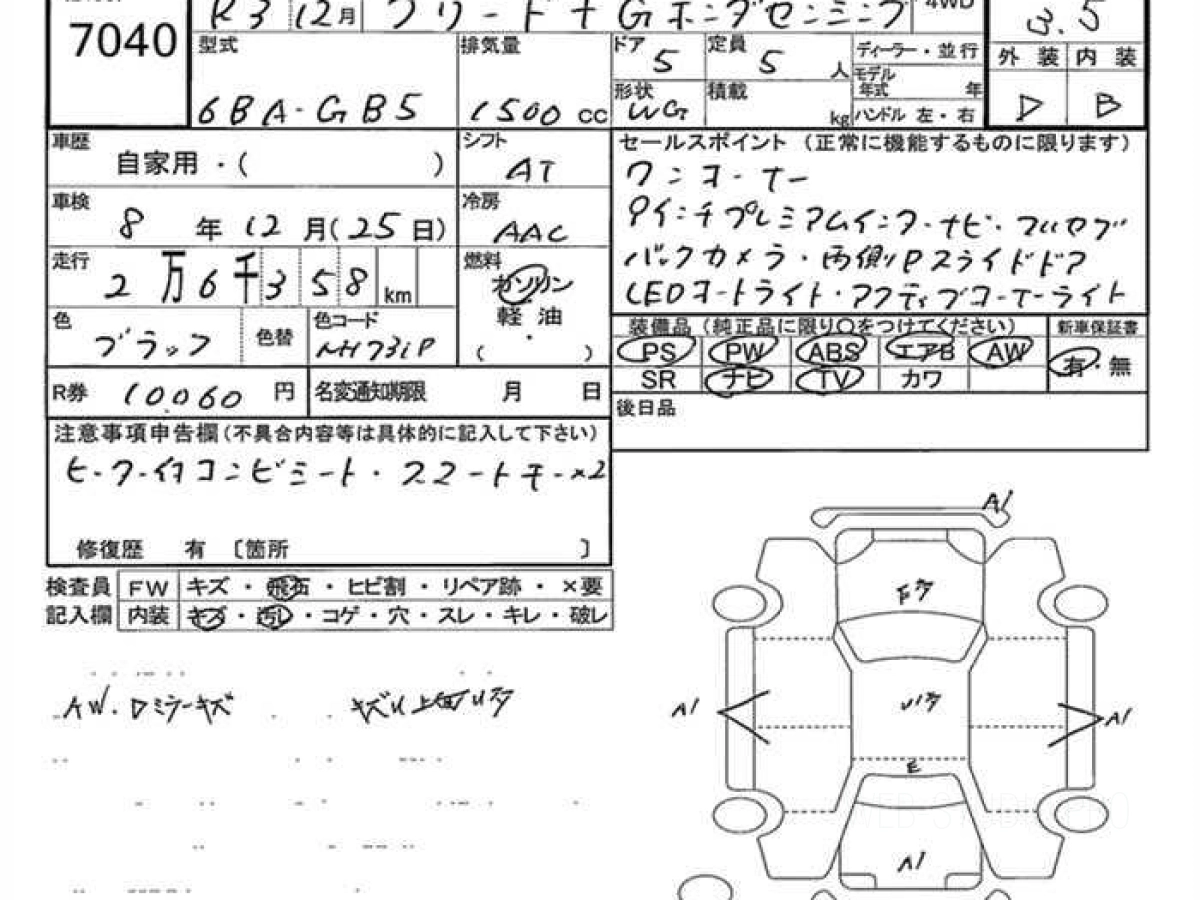 7040
R3 12月 フリード+ Gホンダセンシング 4WD
3.5
型式
6BA-GB5
排気量
1500 cc
ドア
5
定員
5 人
ディーラー・並行
モデル年式 年
形状
WG
積載
kg
ハンドル 左・右
外装 内装
D B
車歴
自家用・( )
シフト
AT
車検
8 年 12 月(25日)
冷房
AAC
走行
2万6千358 km
燃料
ガソリン
軽油
( ・ )
色
ブラック
色替
色コード
NH731P
R券 10060 円
名変通知期限 月 日
セールスポイント (正常に機能するものに限ります)
ワンオーナー
9インチプレミアムインターナビ・フルセグ
バックカメラ・両側Pスライドドア
LEDオートライト・アクティブコーナーライト
装備品 (純正品に限り○をつけてください)
新車保証書
PS PW ABS エアB AW
有・無
SR ナビ TV カワ
後日品
注意事項申告欄(不具合内容等は具体的に記入して下さい)
ヒーター付コンビシート・スマートキー×2
修復歴 有 〔箇所 〕
検査員 FW キズ・飛石・ヒビ割・リペア跡・×要
記入欄 内装 キズ・汚レ・コゲ・穴・スレ・キレ・破レ
AW.Dミラーキズ
A1
A1
A1
E
A1